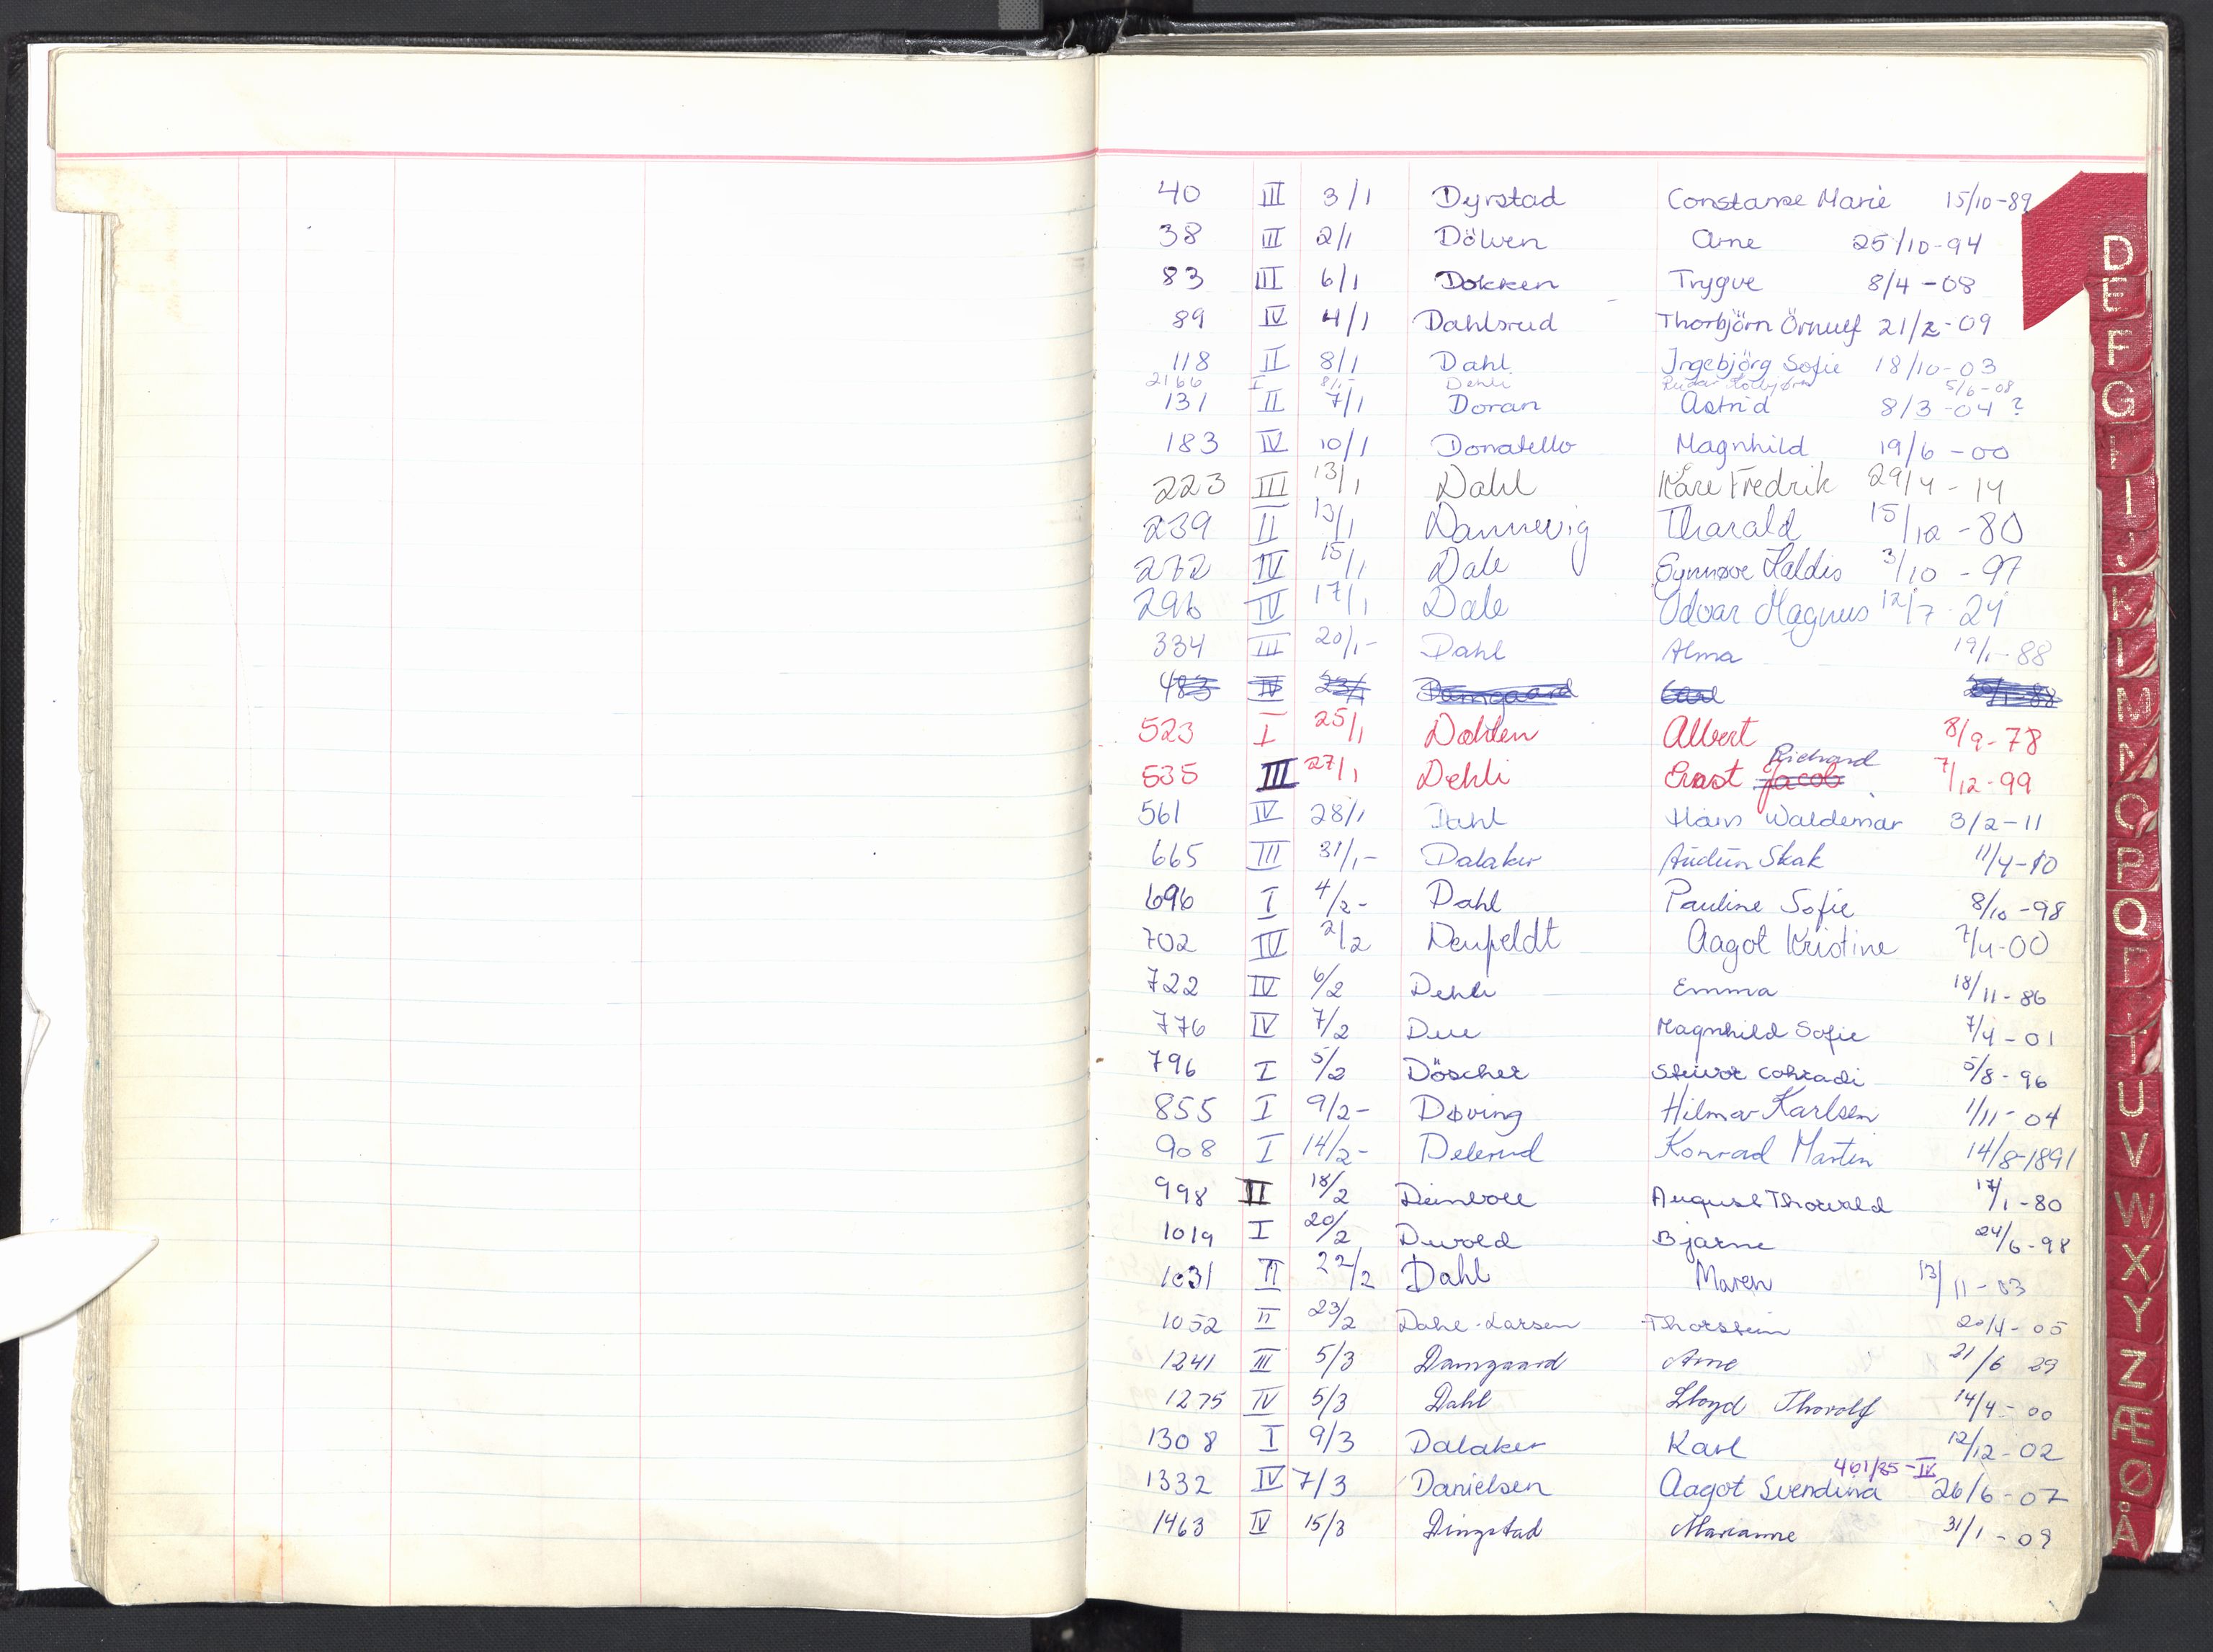 40 III 3/1 Dyrstad Constanse Marie 15/10-89
38 III 2/1 Dölven Arne 25/10-94
83 III 6/1 Dokken Trygve 8/4-08
89 IV 4/1 Dahlsrud Thorbjörn Örnulf 21/2-09
118 II 8/1 Dahl Ingebjörg Sofie 18/10-03
2166 I 8/1- Dehli 5/6-08
131 II 7/1 Doran Astrid 8/3-04 ?
183 IV 10/1 Donatello Magnhild 19/6-00
223 III 13/1 Dahl Kåre Fredrik 29/4-14
239 II 13/1 Dannevig Tharald 15/10-80
272 IV 15/1 Dale Synnøve Haldis 3/10-97
296 IV 17/1 Dale Odvar Magnus 12/7-24
334 III 20/1- Dahl Alma 19/1-88
483 IV 23/1 Damgaard
523 I 25/1 Dahlen Albert 8/9-78
535 III 27/1 Dehli Ernst Jacob Richard 7/12-99
561 IV 28/1 Dahl Hans Waldemar 3/2-11
665 III 31/1- Dalaker Audun Skak 11/4-10
696 I 4/2- Dahl Pauline Sofie 8/10-98
702 IV 2/2 Aagot Kristine 7/4-00
722 IV 6/2 Dehli Emma 18/11-86
776 IV 7/2 Due Magnhild Sofie 7/4-01
796 I 5/2 Döscher Steivor Conradi 5/8-96
855 I 9/2- Døving Hilmar Karlsen 1/11-04
908 I 14/2- Delerud Konrad Martin 14/8-1891
998 II 18/2 Deinboll August Thorvald 17/1-80
1019 I 20/2 Devold Bjarne 24/6-98
1031 II 22/2 Dahl Maren 13/11-03
1052 II 23/2 Dahl-Larsen Thorstein 20/4-05
1241 III 5/3 Damgaard Arne 21/6 29
1275 IV 5/3 Dahl Lloyd Thorolf 14/4-00
1308 I 9/3 Dalaker Karl 12/12-02
461/85-IV
1332 IV 7/3 Danielsen Aagot Svendina 26/6-07
1463 IV 15/3 Dingstad Marianne 31/1-09
D
E
F
G
H
I
J
K
L
M
N
O
P
Q
R
T
U
V
W
X
Y
Z
Æ
Ø
Å